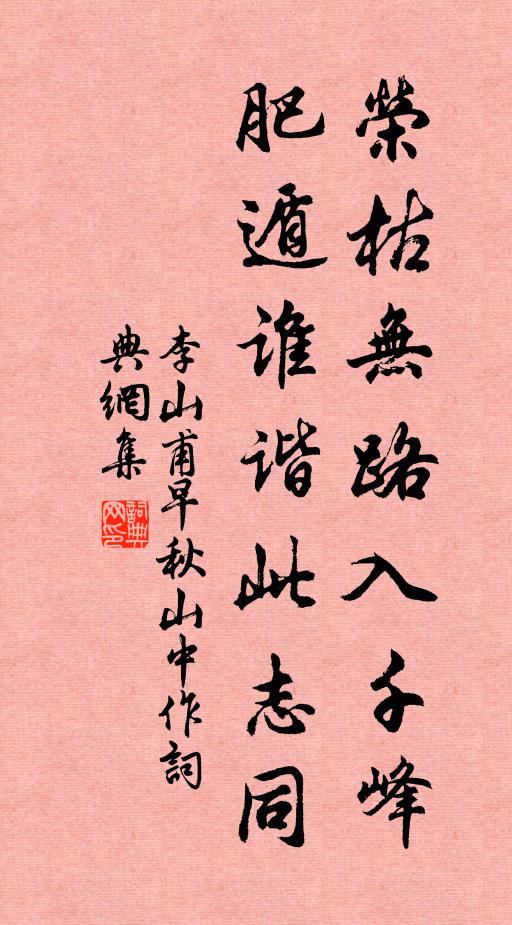 榮枯無路入千峰
肥遁誰諧此志同
李山甫早秋山中作詞
典網集
詞典
网印